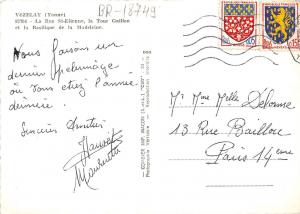 VEZELAY (Yonne)
BP-18749
La Rue St-Etienne, la Tour Gaillon
et la Basilique de la Madeleine.
Nous faisons un
dernier pèlerinage
où vous étiez l'année
dernière.
Sincères Amitiés
Mr Mme Melle Delorme
13 Rue Baillou
Paris 14eme